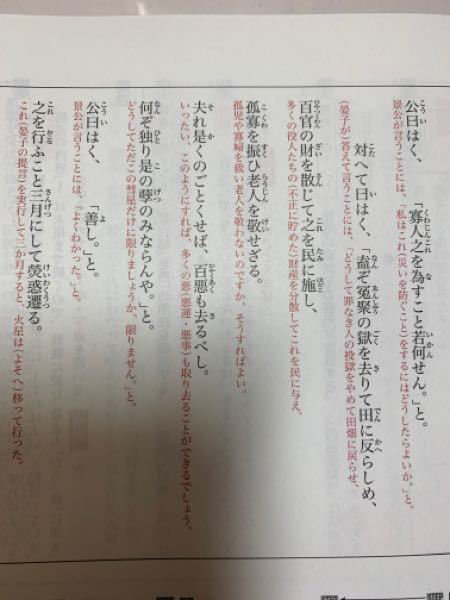 公曰はく、「寡人之を為すこと若何せん。」と。
景公が言うことには、「私はこれ(災いを防ぐこと)をするにはどうしたらよいか。」と。
対へて曰はく、「盍ぞ冤聚の獄を去りて田に反らしめ、
(晏子が)答えて言うことには、「どうして罪なき人の投獄をやめて田畑に戻らせ、
百官の財を散じて之を民に施し、
多くの役人たちの(不正に貯めた)財産を分散してこれを民に与え、
孤寡を振ひ老人を敬せざる。
孤児や寡婦を救い老人を敬わないのですか、そうすればよい。
夫れ是くのごとくせば、百悪も去るべし。
いったい、このようにすれば、多くの悪(悪運・悪事)も取り去ることができるでしょう。
何ぞ独り是の孽のみならんや。」と。
どうしてただこの彗星だけに限りましょうか、限りません。」と。
公曰はく、「善し。」と。
景公が言うことには、「よくわかった。」と。
之を行ふこと三月にして熒惑遷る。
これ(晏子の提言)を実行して三か月すると、火星は(よそへ)移って行った。